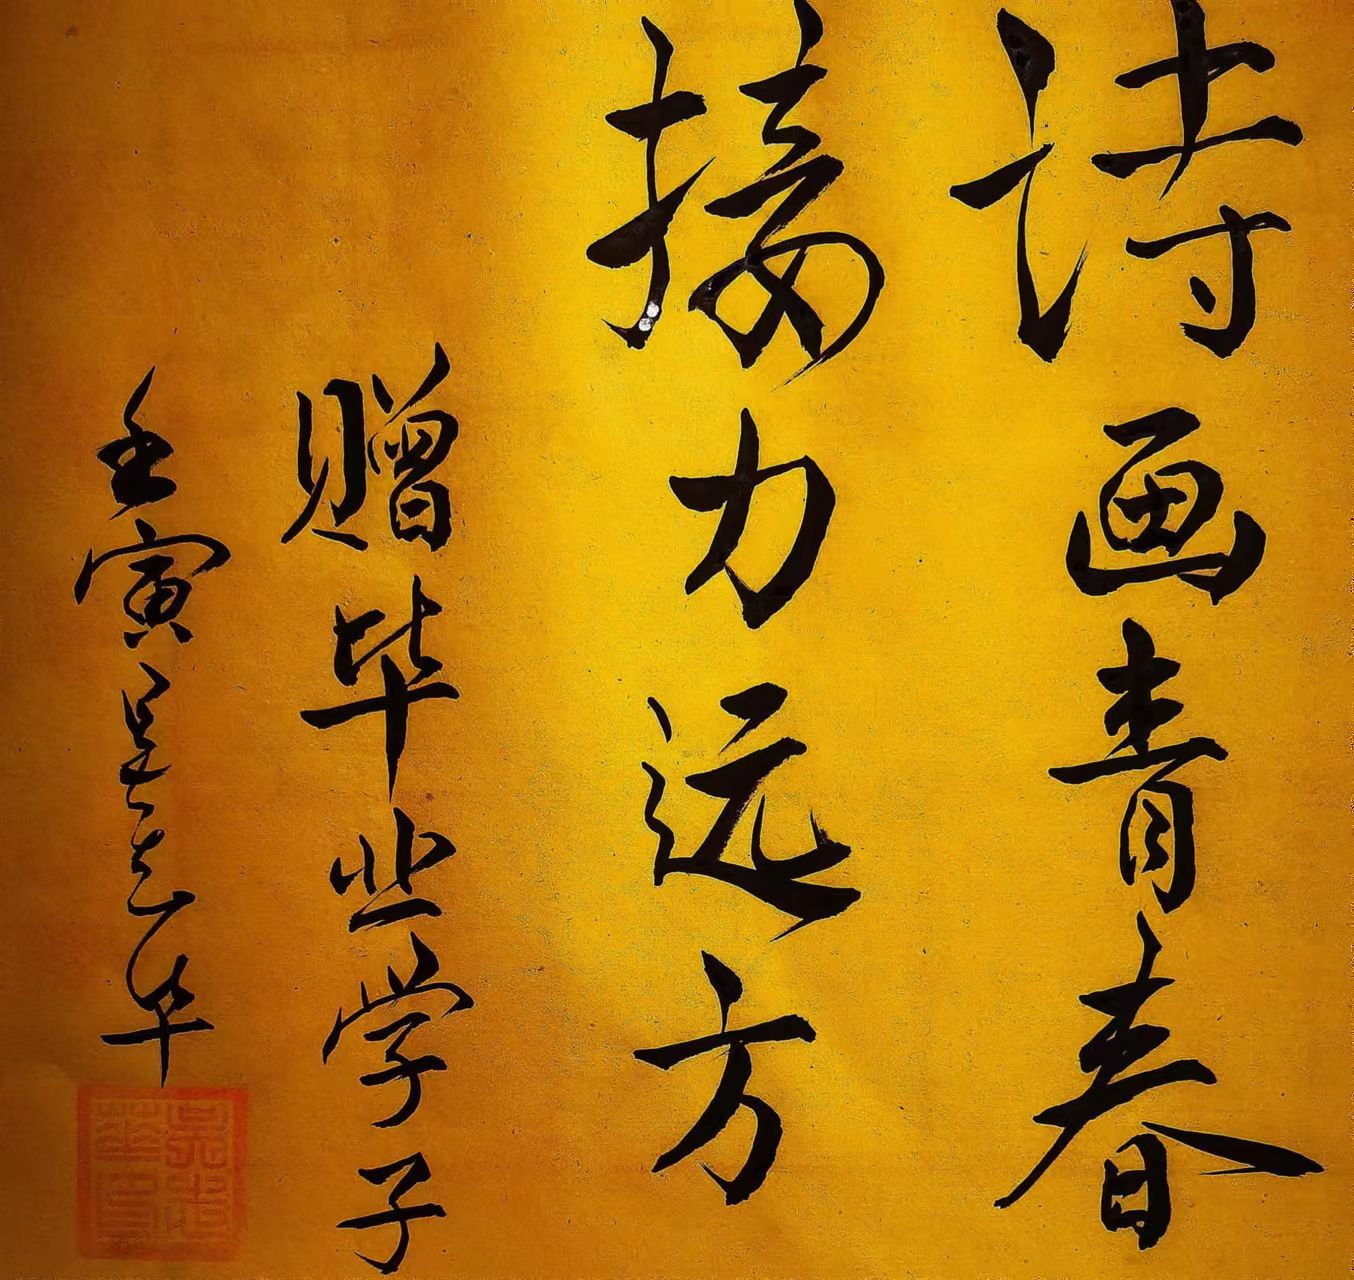 诗画青春
接力远方
赠毕业学子
壬寅吴志华